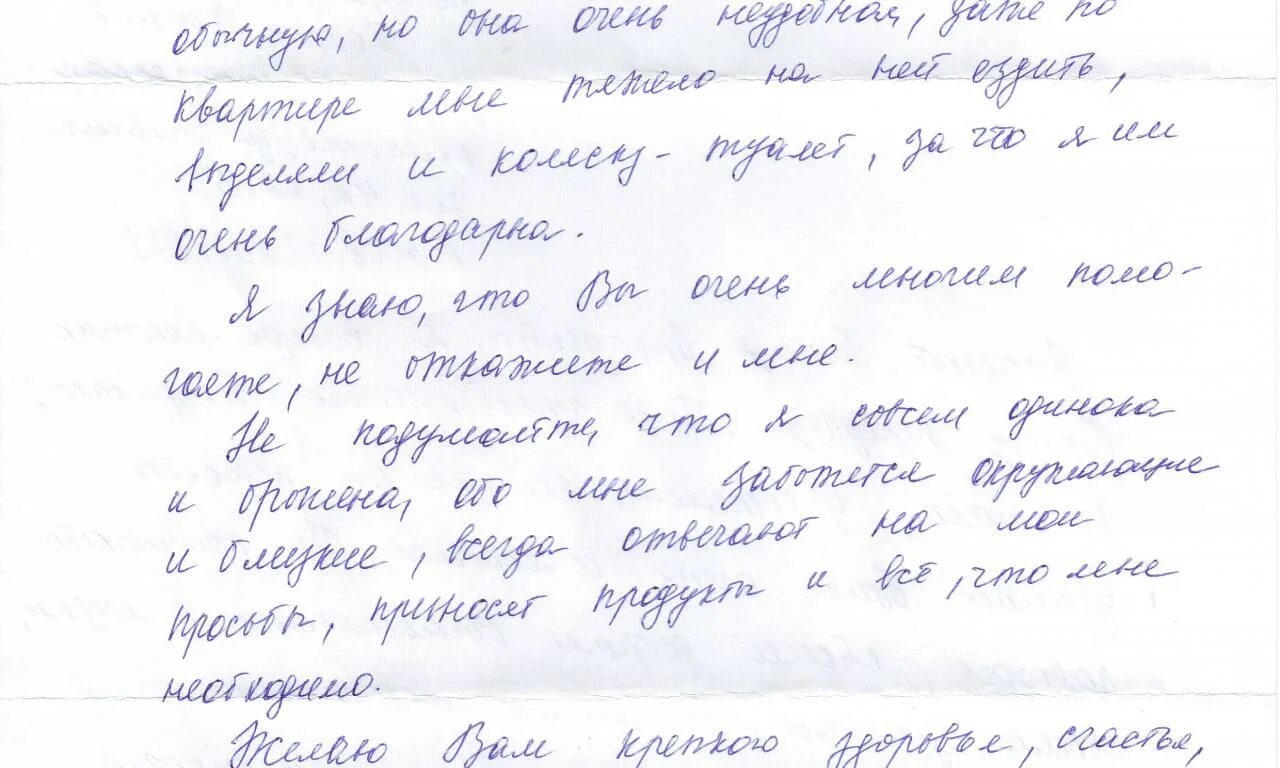 обычную, но она очень неудобная, даже по
квартире мне тяжело на ней ездить,
выделяли и коляску-туалет, за что я им
очень благодарна.
Я знаю, что Вы очень многим помо-
гаете, не откажите и мне.
Не подумайте, что я совсем одинока
и брошена, обо мне заботятся окружающие
и близкие, всегда отвечают на мои
просьбы, приносят продукты и всё, что мне
необходимо.
Желаю Вам крепкого здоровье, счастья,